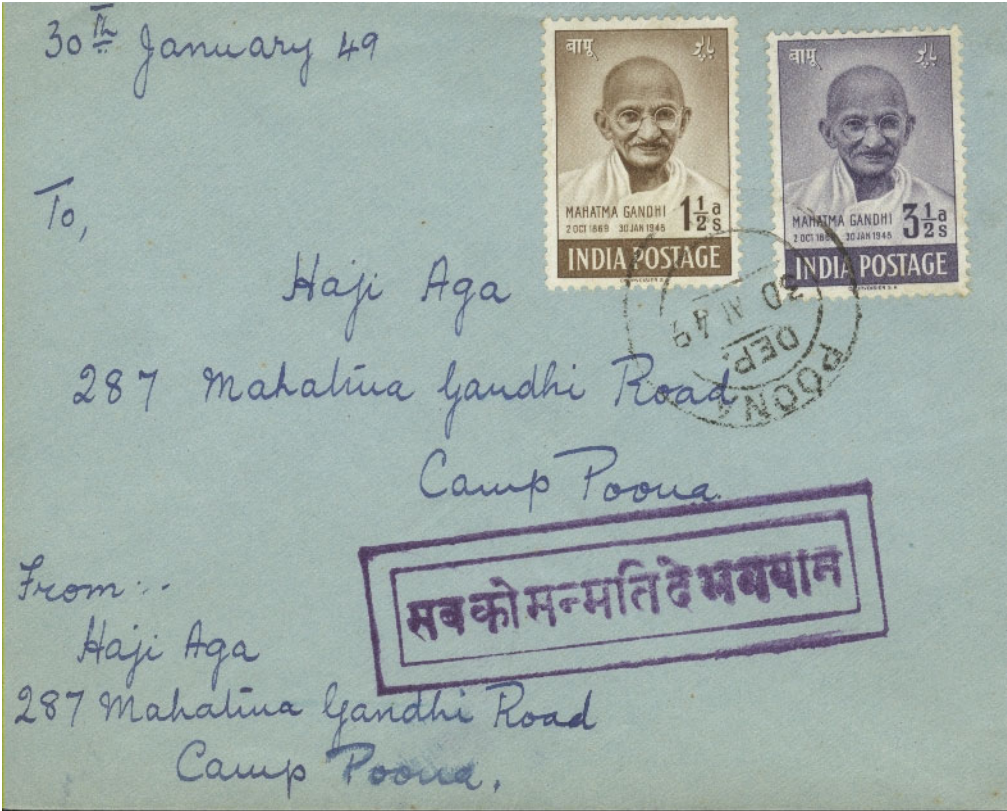 30th January 49
बापू باپو
MAHATMA GANDHI 1½ as
2 OCT 1869 30 JAN 1948
INDIA POSTAGE
बापू باپو
MAHATMA GANDHI 3½ as
2 OCT 1869 30 JAN 1948
INDIA POSTAGE
To,
Haji Aga
287 Mahatma Gandhi Road
Camp Poona.
POONA
DEP.
30 49
सबको सन्मति दे भगवान
From:-
Haji Aga
287 Mahatma Gandhi Road
Camp Poona.